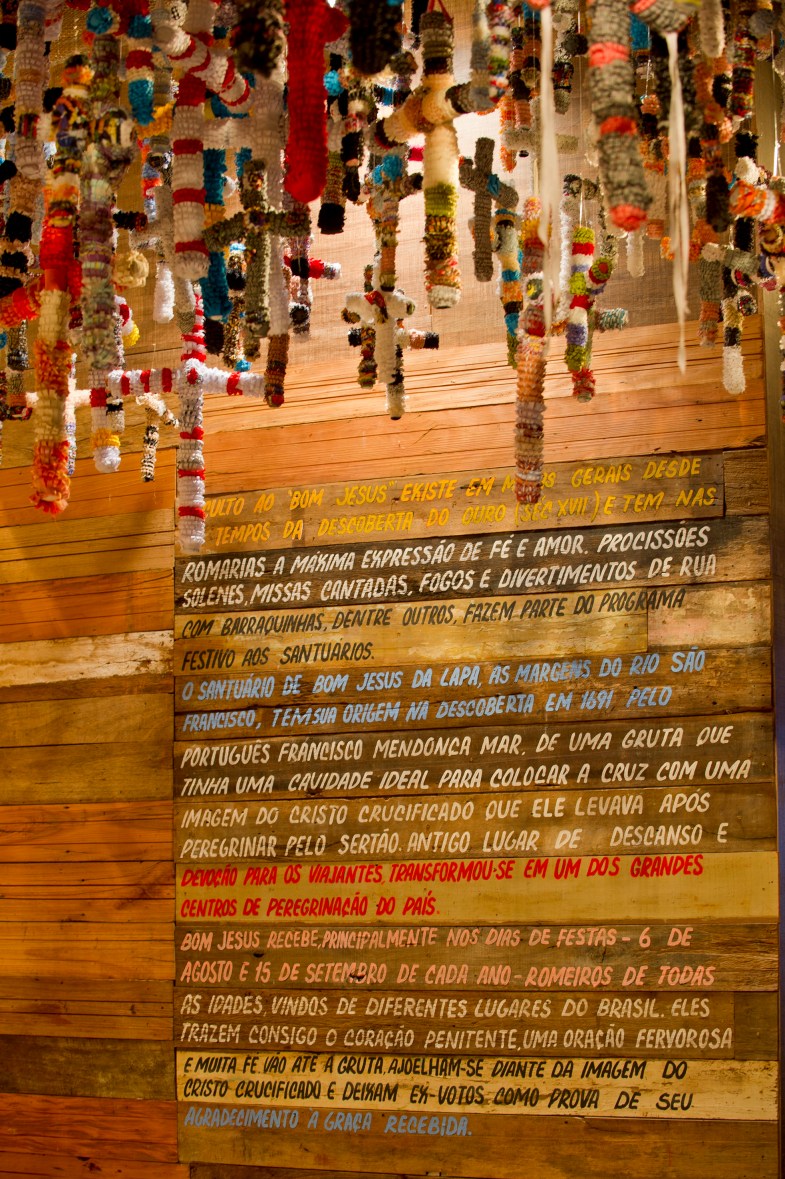 CULTO AO "BOM JESUS" EXISTE EM GERAIS DESDE
TEMPOS DA DESCOBERTA DO OURO (SÉC XVII) E TEM NAS
ROMARIAS A MÁXIMA EXPRESSÃO DE FÉ E AMOR. PROCISSÕES
SOLENES, MISSAS CANTADAS, FOGOS E DIVERTIMENTOS DE RUA
COM BARRAQUINHAS, DENTRE OUTROS, FAZEM PARTE DO PROGRAMA
FESTIVO AOS SANTUÁRIOS.
O SANTUÁRIO DE BOM JESUS DA LAPA, AS MARGENS DO RIO SÃO
FRANCISCO, TEM SUA ORIGEM NA DESCOBERTA EM 1691, PELO
PORTUGUÊS FRANCISCO MENDONCA MAR, DE UMA GRUTA QUE
TINHA UMA CAVIDADE IDEAL PARA COLOCAR A CRUZ COM UMA
IMAGEM DO CRISTO CRUCIFICADO QUE ELE LEVAVA APÓS
PEREGRINAR PELO SERTÃO. ANTIGO LUGAR DE DESCANSO E
DEVOÇÃO PARA OS VIAJANTES, TRANSFORMOU-SE EM UM DOS GRANDES
CENTROS DE PEREGRINAÇÃO DO PAÍS.
BOM JESUS RECEBE, PRINCIPALMENTE NOS DIAS DE FESTAS - 6 DE
AGOSTO E 15 DE SETEMBRO DE CADA ANO - ROMEIROS DE TODAS
AS IDADES, VINDOS DE DIFERENTES LUGARES DO BRASIL. ELES
TRAZEM CONSIGO O CORAÇÃO PENITENTE, UMA ORAÇÃO FERVOROSA
E MUITA FÉ VÃO ATÉ A GRUTA. AJOELHAM-SE DIANTE DA IMAGEM DO
CRISTO CRUCIFICADO E DEIXAM EX-VOTOS COMO PROVA DE SEU
AGRADECIMENTO A GRAÇA RECEBIDA.